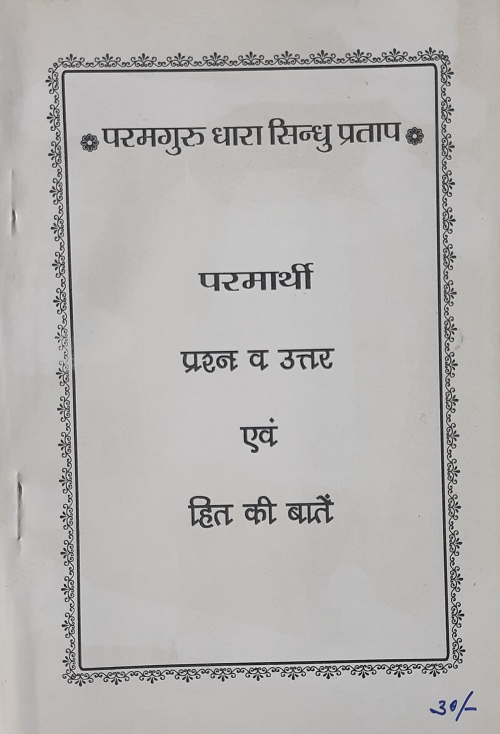 परमगुरु धारा सिन्धु प्रताप
परमार्थी
प्रश्न व उत्तर
एवं
हित की बातें
30/-